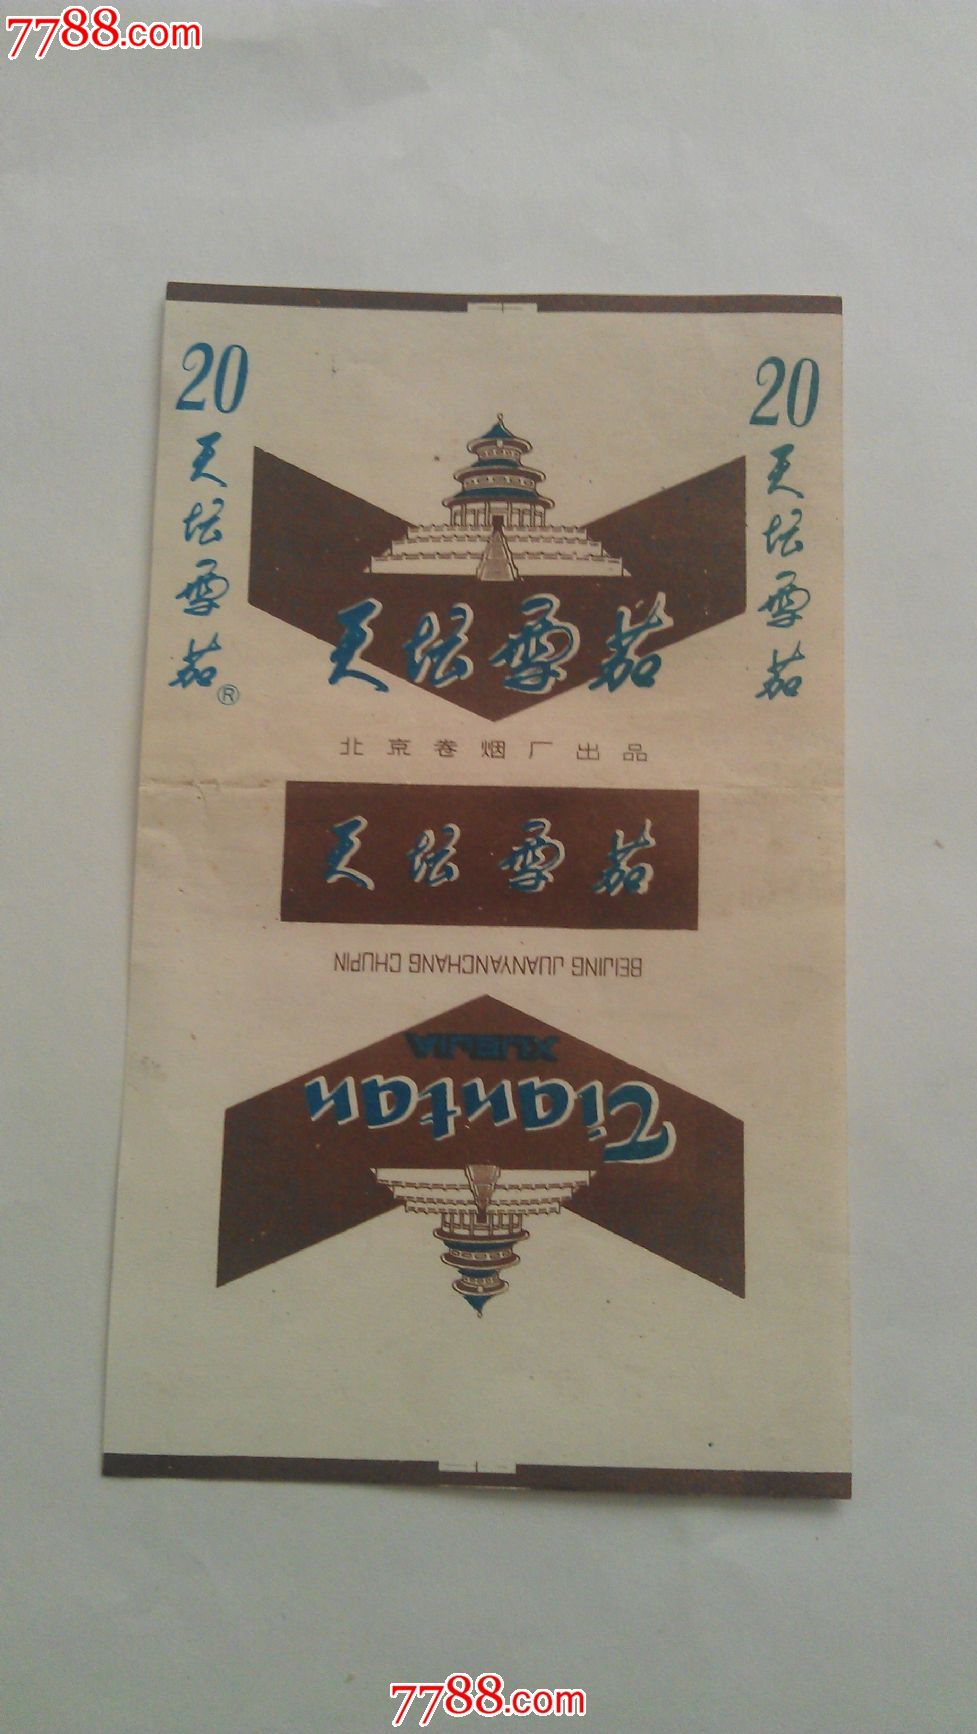 7788.com
20
天坛雪茄®
20
天坛雪茄
天坛雪茄
北京卷烟厂出品
天坛雪茄
BEIJING JUANYANCHANG CHUPIN
XUEJIA
Tiantan
7788.com